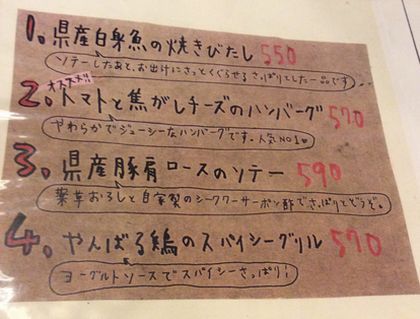 1。県産白身魚の焼きびたし 550
ソテーしたあと、お出汁にさっとくぐらせるさっぱりとした一品です
オススメ!!
2。トマトと焦がしチーズのハンバーグ 570
やわらかでジューシーなハンバーグです。人気NO1
3。県産豚肩ロースのソテー 590
薬草おろしと自家製のシークワーサーポン酢でさっぱりとどうぞ。
4。やんばる鶏のスパイシーグリル 570
ヨーグルトソースでスパイシーさっぱり!